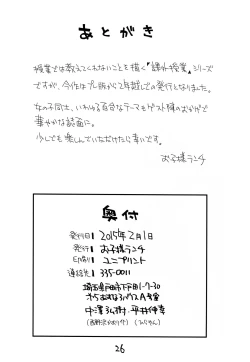 あとがき
授業では教えてくれないことを描く「課外授業」シリーズ
ですが、今作はプレ版から2年越しでの発行となりました。
女の子同士、いわゆる百合なテーマもゲスト様のおかげで
華やかな誌面に。
少しでも楽しんでいただけたら幸いです。
お子様ランチ
奥付
発行日 2015年2月1日
発行 お子様ランチ
印刷 ユニプリント
連絡先 335-0011
埼玉県戸田市下戸田1-7-30
26